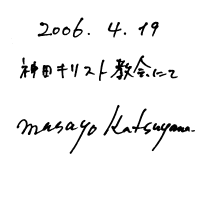 2006. 4. 19
神田キリスト教会にて
Masayo Katsuyama.